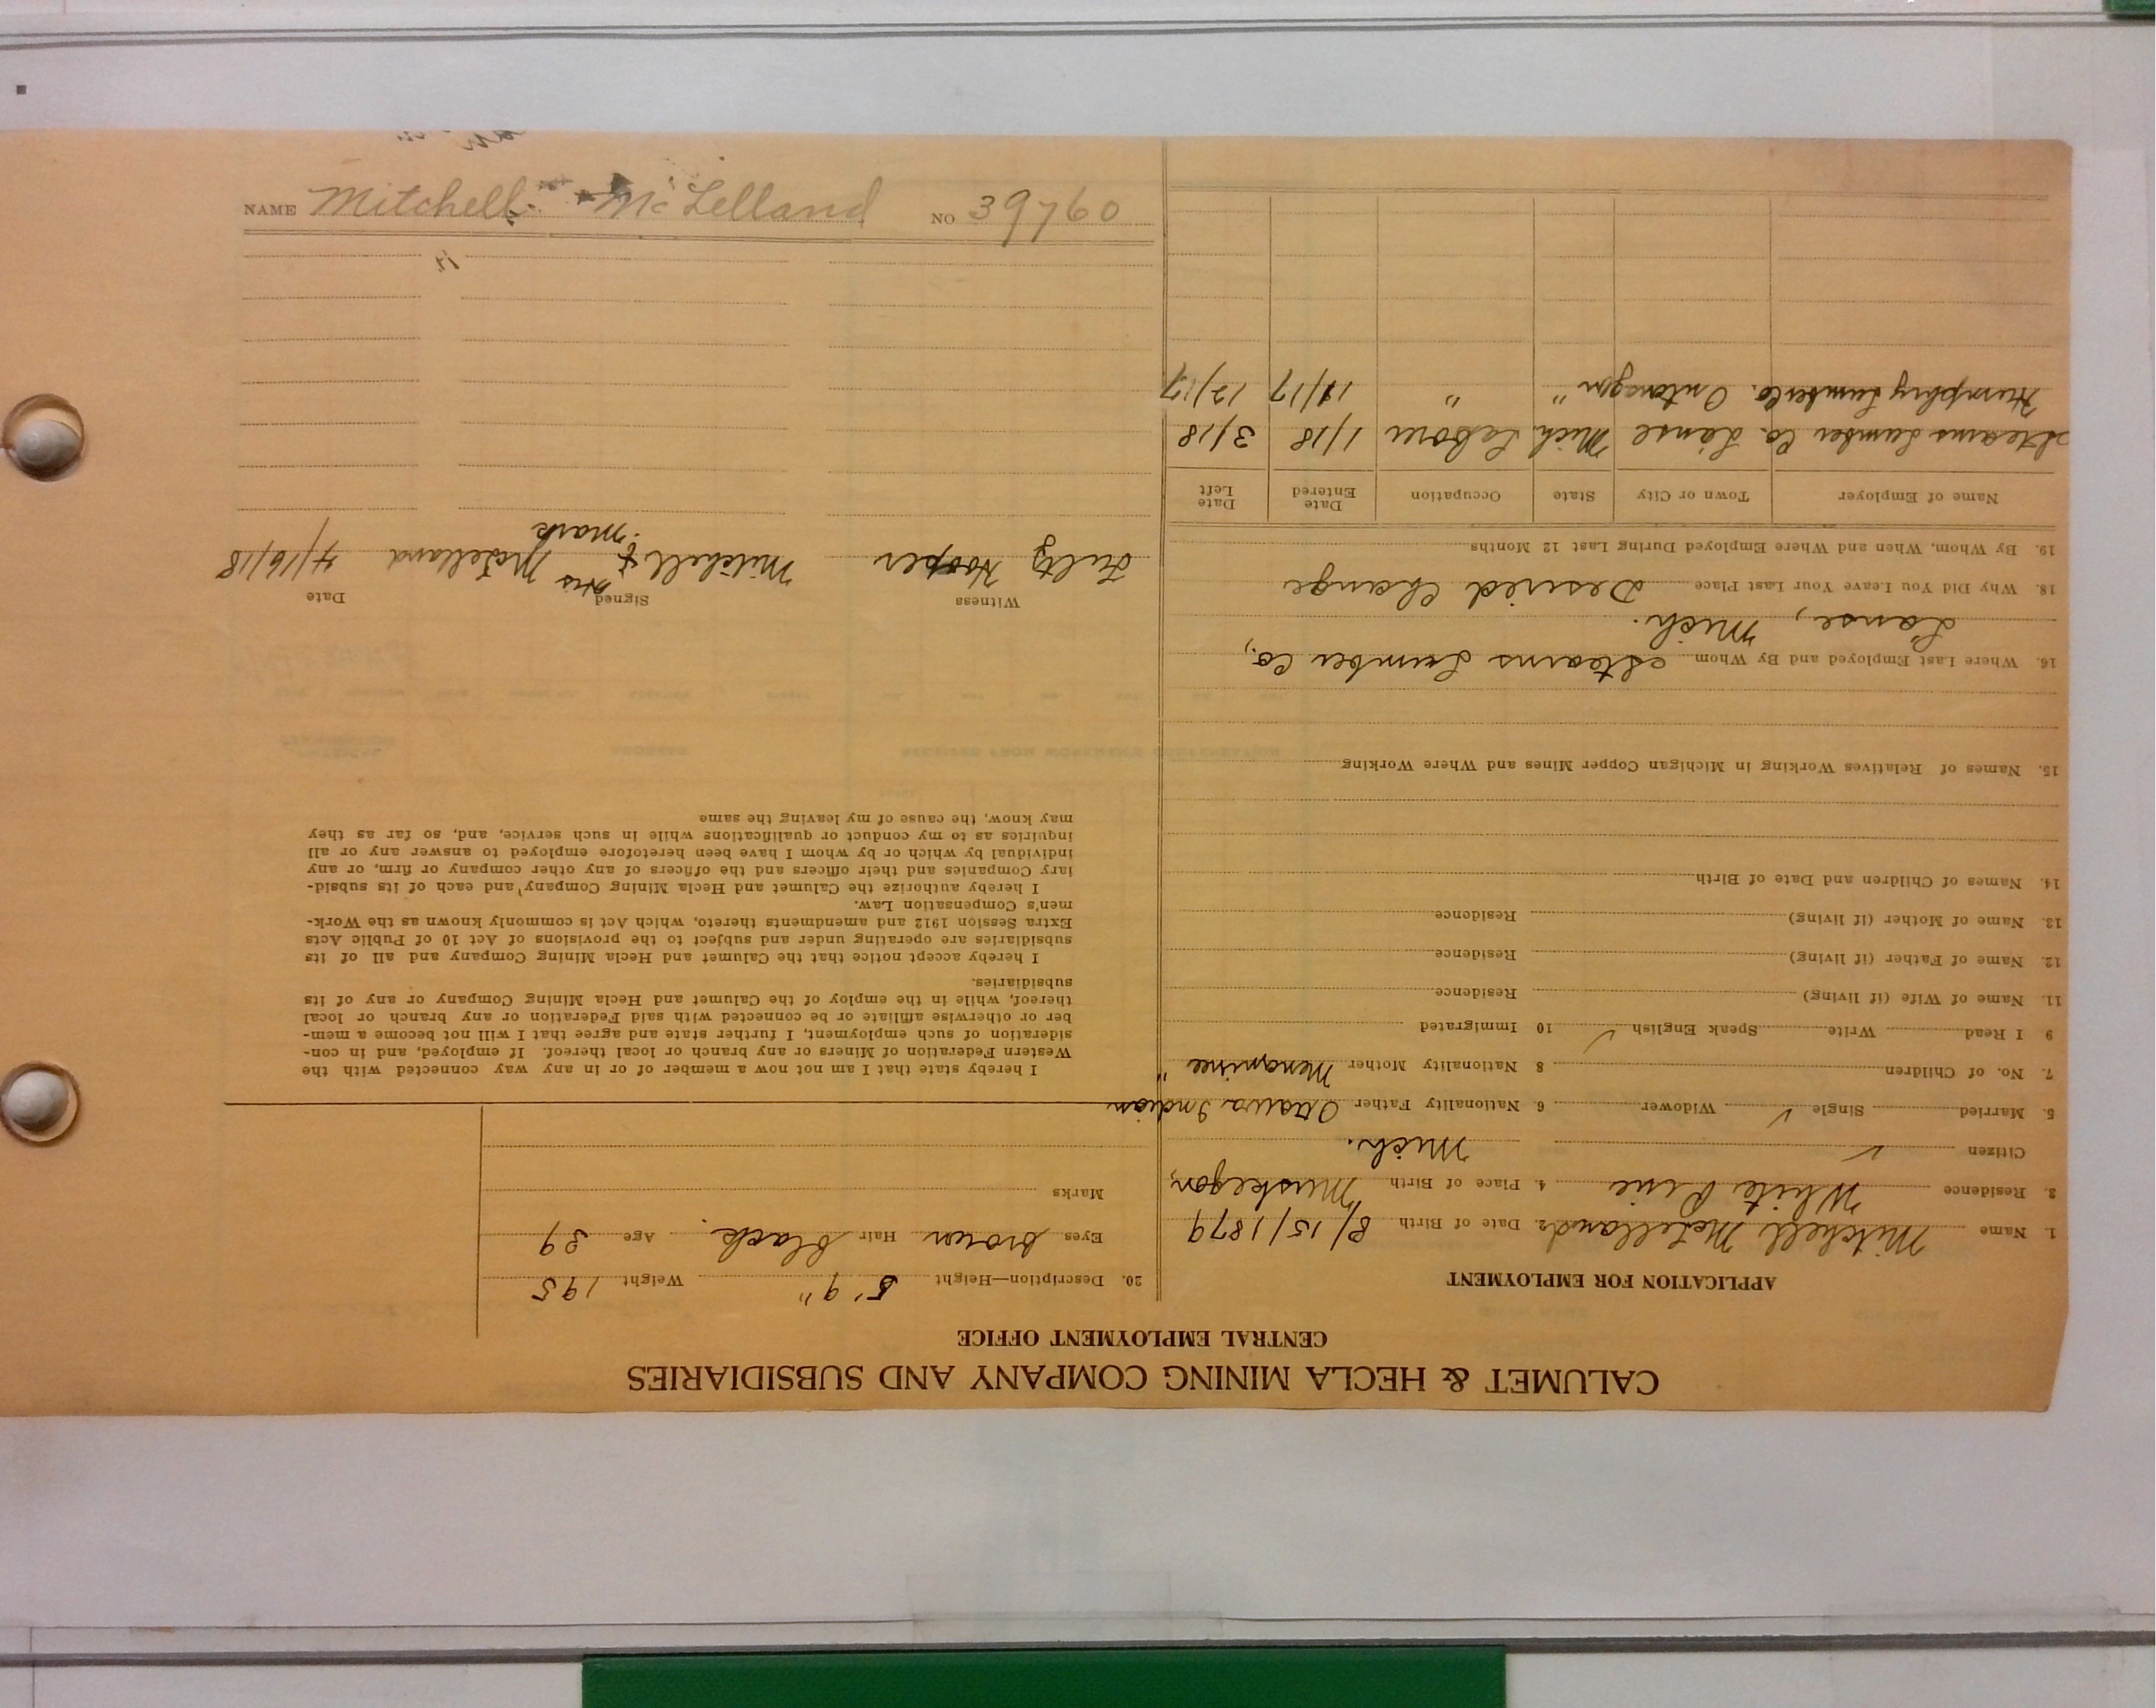 CALUMET & HECLA MINING COMPANY AND SUBSIDIARIES
CENTRAL EMPLOYMENT OFFICE
APPLICATION FOR EMPLOYMENT
1. Name Mitchell McLelland 2. Date of Birth 8/15/1879
3. Residence White Pine 4. Place of Birth Muskegon,
Citizen ✓ Mich.
5. Married Single ✓ Widower 6. Nationality Father Ottawa Indian
7. No. of Children 8 Nationality Mother Menominee "
9 I Read Write Speak English ✓ 10 Immigrated
11. Name of Wife (if living) Residence
12. Name of Father (if living) Residence
13. Name of Mother (if living) Residence
14. Names of Children and Date of Birth
15. Names of Relatives Working in Michigan Copper Mines and Where Working
16. Where Last Employed and By Whom Stearns Lumber Co,
L'anse, Mich.
18. Why Did You Leave Your Last Place Desired Change
19. By Whom, When and Where Employed During Last 12 Months
Name of Employer Town or City State Occupation Date Entered Date Left
Stearns Lumber Co. L'anse Mich Labour 1/18 3/18
Humphry Lumber Co. Ontonagon " " 11/17 12/17
20. Description—Height 5' 9" Weight 195
Eyes brown Hair black. Age 39
Marks
I hereby state that I am not now a member of or in any way connected with the
Western Federation of Miners or any branch or local thereof. If employed, and in con-
sideration of such employment, I further state and agree that I will not become a mem-
ber or otherwise affiliate or be connected with said Federation or any branch or local
thereof, while in the employ of the Calumet and Hecla Mining Company or any of its
subsidiaries.
I hereby accept notice that the Calumet and Hecla Mining Company and all of its
subsidiaries are operating under and subject to the provisions of Act 10 of Public Acts
Extra Session 1912 and amendments thereto, which Act is commonly known as the Work-
men's Compensation Law.
I hereby authorize the Calumet and Hecla Mining Company and each of its subsid-
iary Companies and their officers and the officers of any other company or firm, or any
individual by which or by whom I have been heretofore employed to answer any or all
inquiries as to my conduct or qualifications while in such service, and, so far as they
may know, the cause of my leaving the same
Witness Signed Date
his
Hooper Mitchell X McLelland 4/16/18
mark
NAME Mitchell McLelland NO 39760